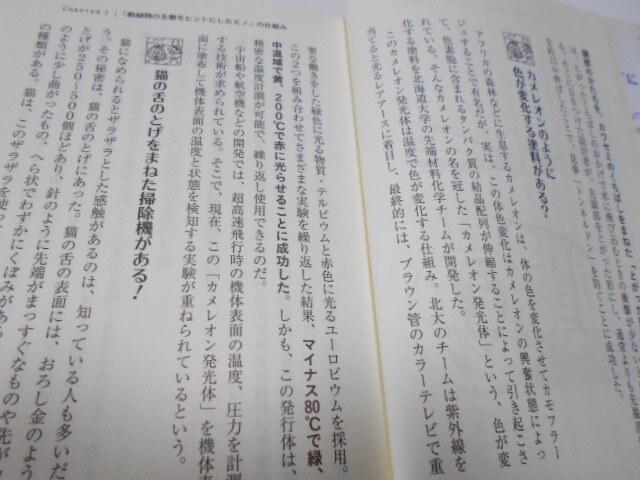 カメレオンのように
色が変化する塗料がある？
アフリカの森林などに生息するカメレオンは、体の色を変化させてカモフラー
ジュすることで有名だが、実は、この体色変化はカメレオンの興奮状態によっ
て、色素胞に含まれるタンパク質の結晶配列が伸縮することによって引き起こさ
れている。そんなカメレオンの名を冠した「カメレオン発光体」という、色が変
化する塗料を北海道大学の先端材料化学チームが開発した。
このカメレオン発光体は温度で色が変化する仕組み。北大のチームは紫外線を
当てると光るレアアースに着目し、最終的には、ブラウン管のカラーテレビで重
CHAPTER 2 「動植物の生態をヒントにしたモノ」の仕組み
要な働きをした緑色に光る物質・テルビウムと赤色に光るユーロビウムを採用。
この2つを組み合わせてさまざまな実験を繰り返した結果、マイナス80℃で緑、
中温域で黄、200℃で赤に光らせることに成功した。しかも、この発行体は、
精密な温度計測が可能で、繰り返し使用できるのだ。
宇宙船や航空機などの開発では、超高速飛行時の機体表面の温度、圧力を計測
する技術が求められている。そこで、現在、この「カメレオン発光体」を機体表
面に塗布して機体表面の温度と状態を検知する実験が重ねられているという。
猫の舌のとげをまねた掃除機がある！
猫になめられるとザラザラとした感触があるのは、知っている人も多いだ
う。その秘密は、猫の舌のとげにあった。猫の舌の表面には、おろし金のよう
とげが250～500個ほどあり、針のように先端がまっすぐなものや先が
のように少し曲がったもの、へら状でわずかにくぼみがある
の種類がある。猫は、このザラザラを使っ